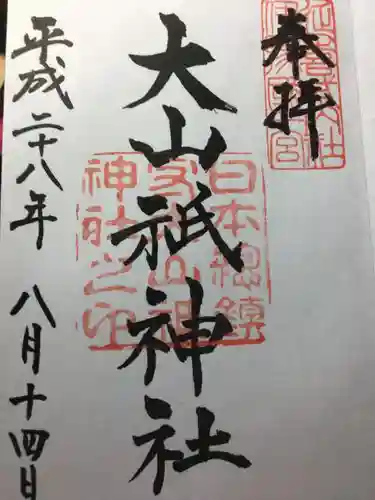 奉拝
大山祇神社
平成二十八年 八月十四日
日本總鎮
守大山祇
神社之印